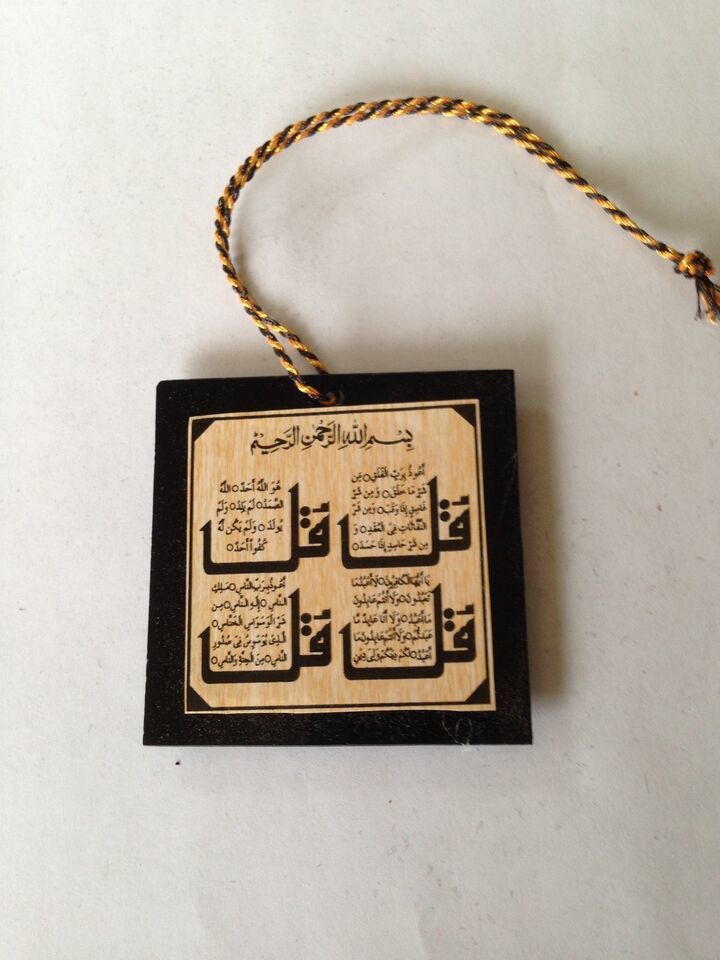 بِسْمِ اللهِ الرَّحْمٰنِ الرَّحِيْمِ
قل
أَعُوذُ بِرَبِّ الْفَلَقِ○ مِن
شَرِّ مَا خَلَقَ○ وَ مِن شَرِّ
غَاسِقٍ إِذَا وَقَبَ○ وَ مِن شَرِّ
النَّفَّاثَاتِ فِي الْعُقَدِ○ وَ
مِن شَرِّ حَاسِدٍ إِذَا حَسَدَ○
قل
هُوَ اللَّهُ أَحَدٌ○ اللَّهُ
الصَّمَدُ○ لَمْ يَلِدْ○ وَلَمْ
يُولَدْ○ وَلَمْ يَكُن لَّهُ
كُفُوًا أَحَدٌ○
قل
يَا أَيُّهَا الْكَافِرُونَ○لَا أَعْبُدُ مَا
تَعْبُدُونَ○وَلَا أَنْتُمْ عَابِدُونَ
مَا أَعْبُدُ○وَلَا أَنَا عَابِدٌ مَّا
عَبَدْتُّمْ○وَلَا أَنْتُمْ عَابِدُونَ مَا
أَعْبُدُ○لَكُمْ دِينُكُمْ وَلِيَ دِينِ
قل
أَعُوذُ بِرَبِّ النَّاسِ○مَلِكِ
النَّاسِ○إِلَٰهِ النَّاسِ○مِن
شَرِّ الْوَسْوَاسِ الْخَنَّاسِ○
الَّذِي يُوَسْوِسُ فِي صُدُورِ
النَّاسِ○مِنَ الْجِنَّةِ وَالنَّاسِ○